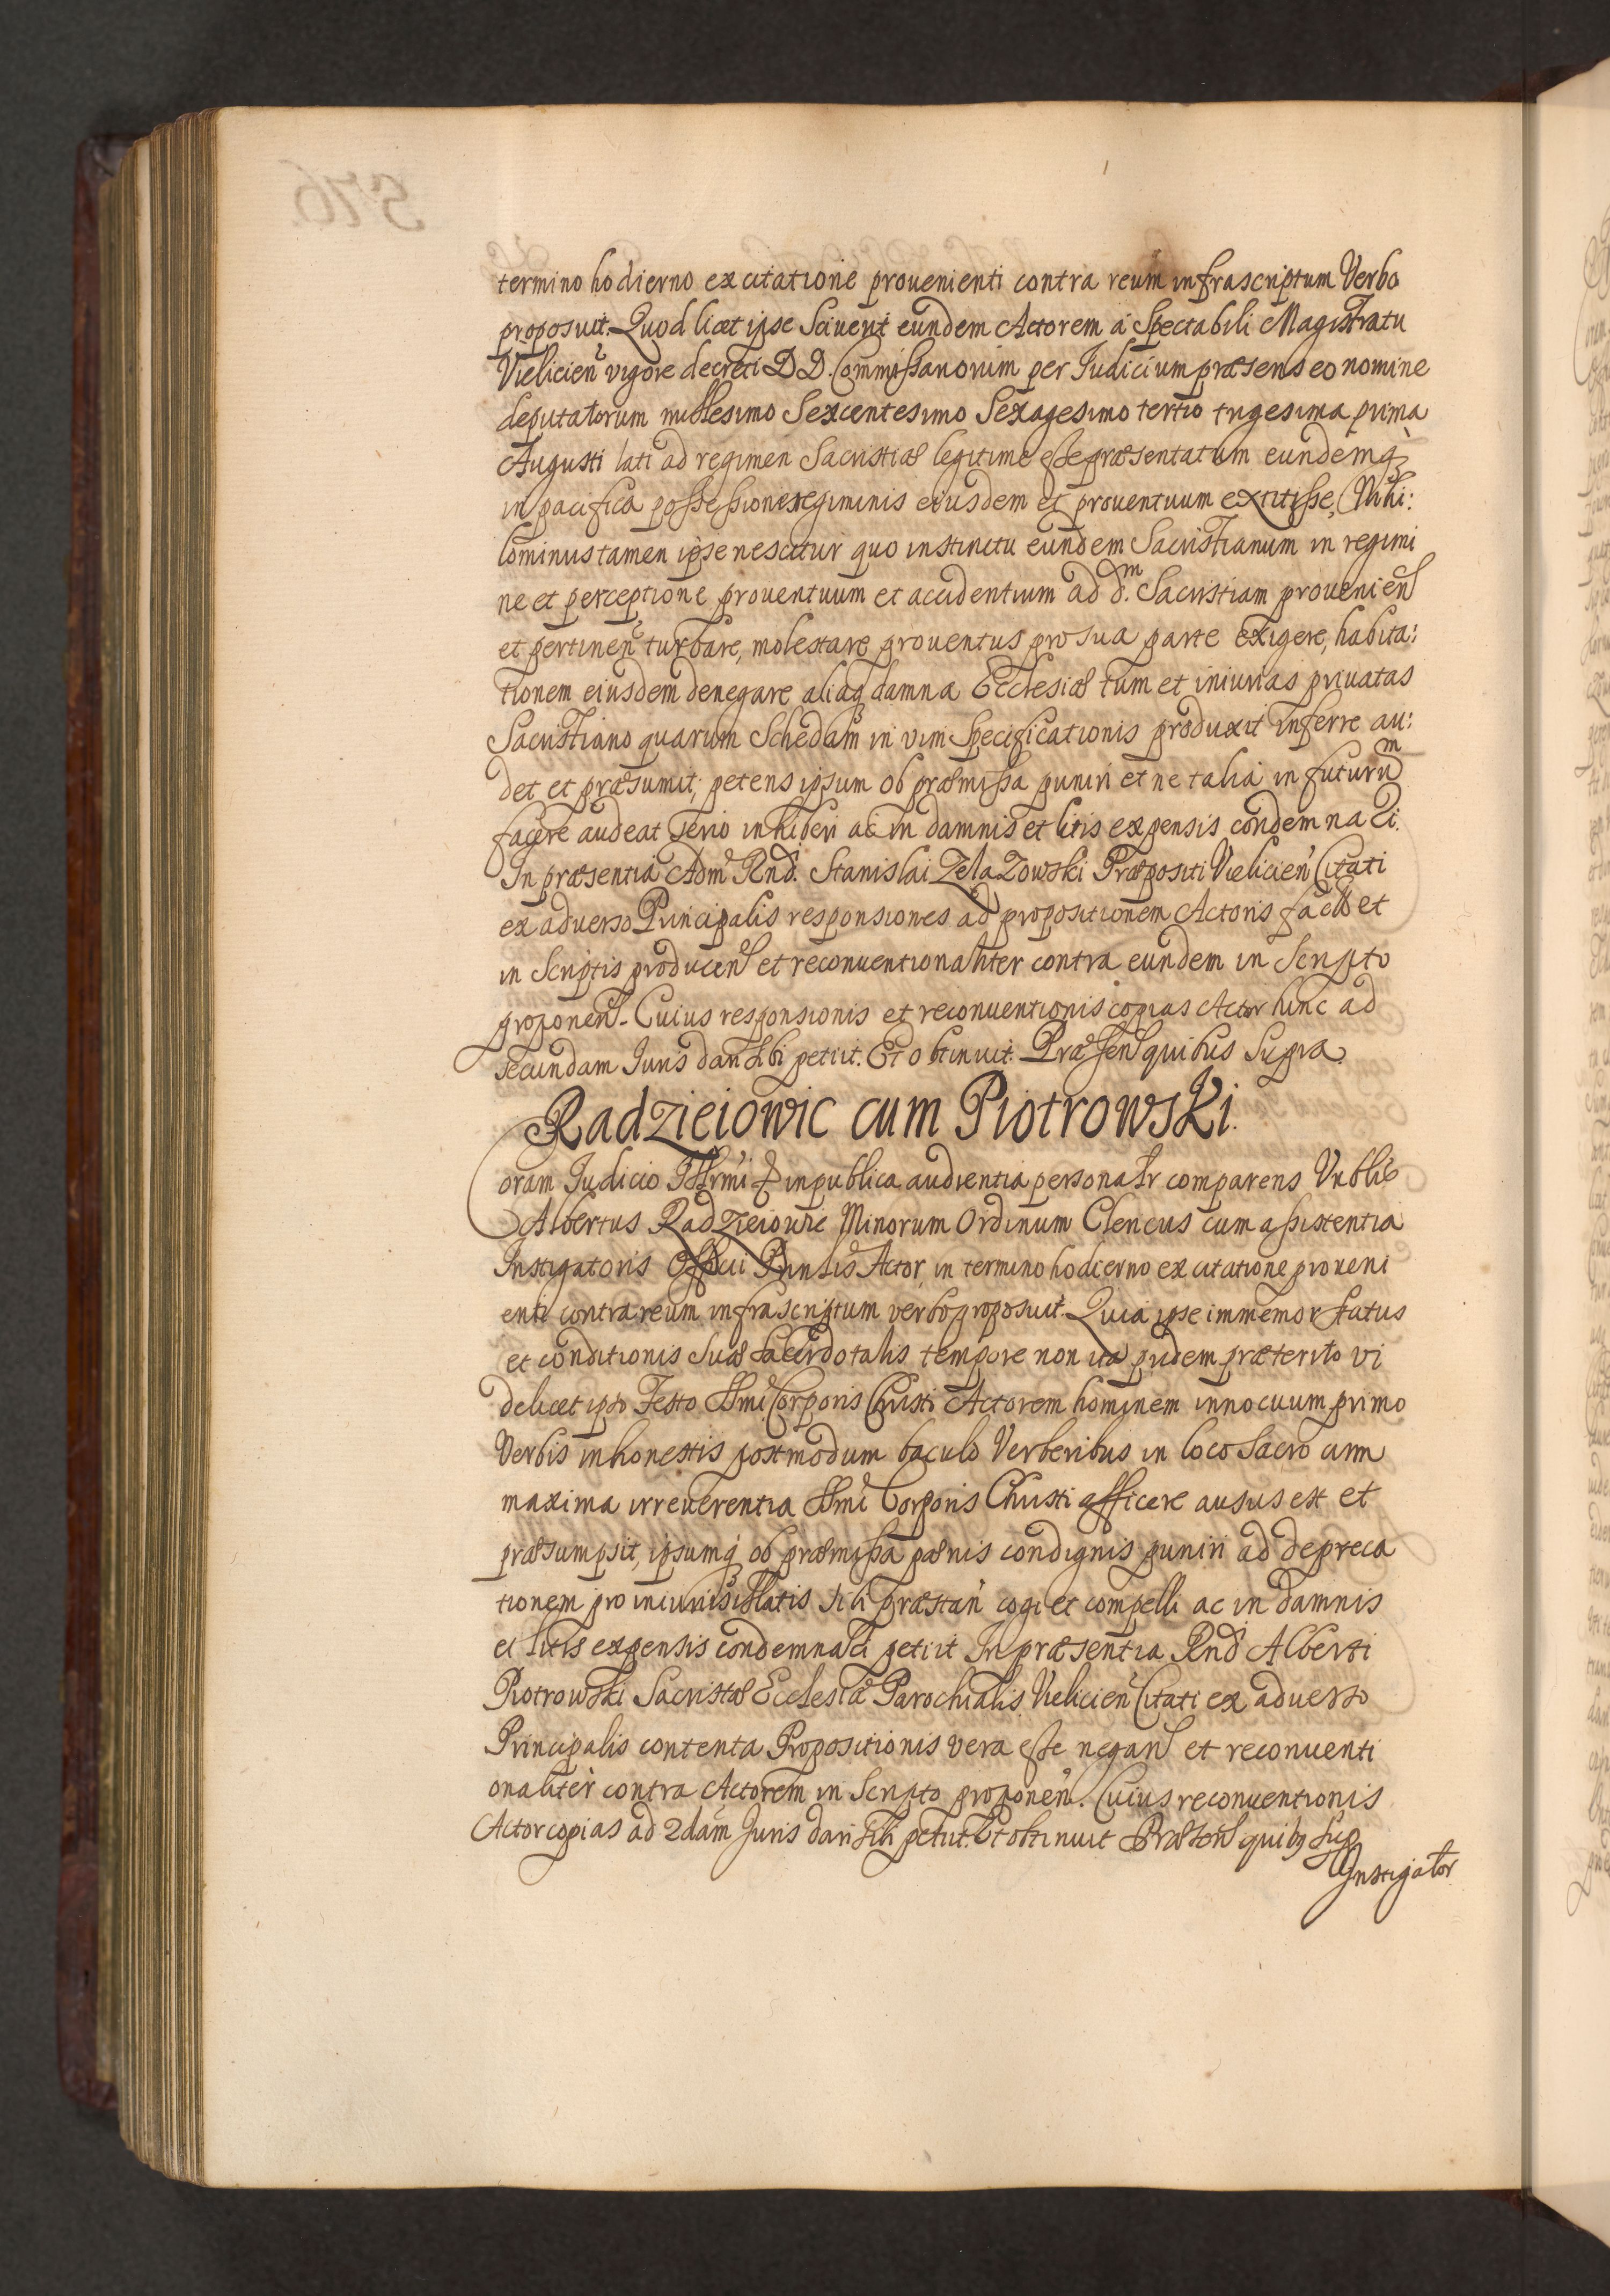 termino hodierno ex citatione prouenienti contra reum infrascriptum Verbo
proposuit. Quod licet ipse Sciuerit eundem Actorem á Spectabili Magistratu
Vielicien vigore decreti D D. Commissariorum per Judicium præsens eo nomine
deputatorum millesimo Sexcentesimo Sexagesimo tertio trigesima prima
Augusti lati ad regimen Sacristiæ legitime esse præsentatum eundemq;
in pacifica possessione regiminis eiusdem et prouentuum extitisse, Nihi:
lominus tamen ipse nescitur quo instinctu eundem Sacristianum in regimi
ne et perceptione prouentuum et accidentium ad d.m Sacristiam prouenien
et pertinen turbare, molestare prouentus pro sua parte exigere, habita:
tionem eiusdem denegare aliaq; damna Ecclesiæ tum et iniurias priuatas
Sacristiano quarum Schedam in vim Specificationis produxit inferre au:
det et præsumit; petens ipsum ob præmissa puniri et ne talia in futurum
facere audeat serio inhiberi ac in damnis et litis expensis condemnari.
In præsentia Adm Rnd. Stanislai Zelazowski Præpositi Vielicien Citati
ex aduerso Principalis responsiones ad propositionem Actoris facto et
in Scriptis producen et reconuentionaliter contra eundem in Scripto
proponen. Cuius responsionis et reconuentionis copias Actor hinc ad
secundam Juris dari sibi petiit. Et obtinuit. Præsen quibus Supra.
Radzieiowic cum Piotrowski.
Coram Judicio in publica audientia personalr comparens
Albertus Radzieiowic Minorum Ordinum Clericus cum assistentia
Instigatoris Officii Actor in termino hodierno ex citatione proueni
enti contra reum infrascriptum verbo proposuit. Quia ipse immemor status
et conditionis suæ sacerdotalis tempore non ita pridem præterito vi
delicet ipso Festo SSmi Corporis Christi Actorem hominem innocuum primo
Verbis inhonestis postmodum baculo Verberibus in loco Sacro cum
maxima irreuerentia SSmi Corporis Christi afficere ausus est et
præsumpsit, ipsumq; ob præmissa pænis condignis puniri ad depreca
tionem pro iniuriis illatis sibi præstan cogi et compelli ac in damnis
et litis expensis condemnari petiit In præsentia Rnd Alberti
Piotrowski Sacristæ Ecclesiæ Parochialis Vielicien Citati ex aduerso
Principalis contenta Propositionis vera esse negan et reconuenti
onaliter contra Actorem in Scripto proponen. Cuius reconuentionis
Actor copias ad 2dam Juris dari sibi petiit. Et obtinuit Præsen quib9 sup
Instigator